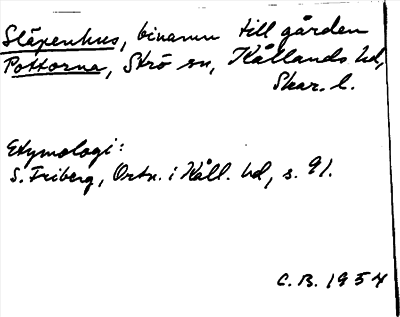 Släpenhus, binamn till gården
Pottorna, Strö sn, Kållands hd,
Skar. l.
Etymologi:
S. Friberg, Ortn. i Kåll. hd, s. 91.
C.B. 1954